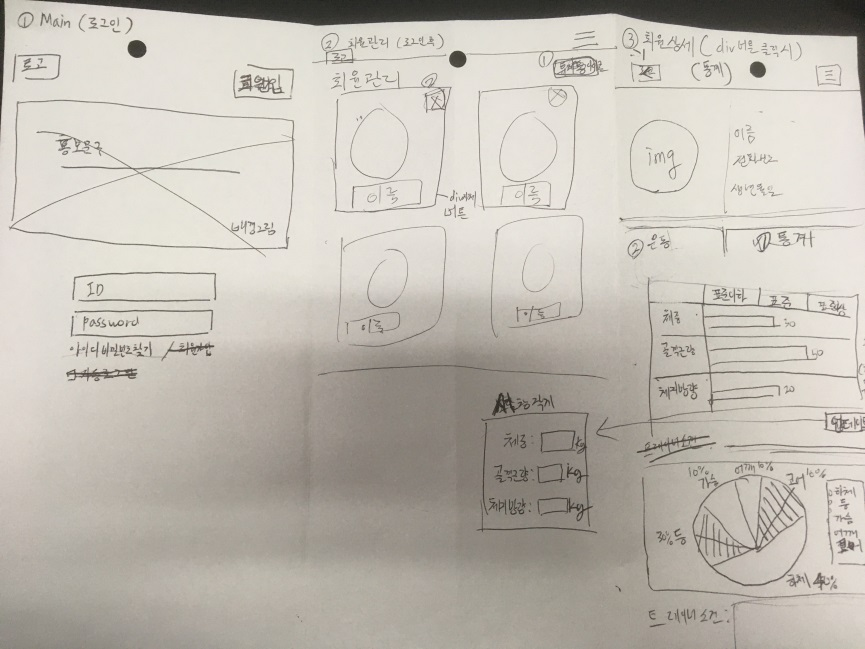 ① Main (로그인)
로고
회원가입
홍보문구
배경그림
ID
password
아이디 비밀번호 찾기 / 회원가입
② 회원관리 (로그인후)
로고
회원관리
①
②
이름
이름
div전체
버튼
이름
이름
창 작게
체중: kg
골격근량: kg
체지방량: kg
③ 회원상세 (div버튼 클릭시)
(통계)
img
이름
전화번호
생년월일
② 운동
① 통계
표준이하 표준 표준이상
체중 50
골격근량 40
체지방량 20
업데이트
트레이너 소견
10% 가슴
어깨 10%
30% 등
하체
등
가슴
어깨
트레이너 소견: